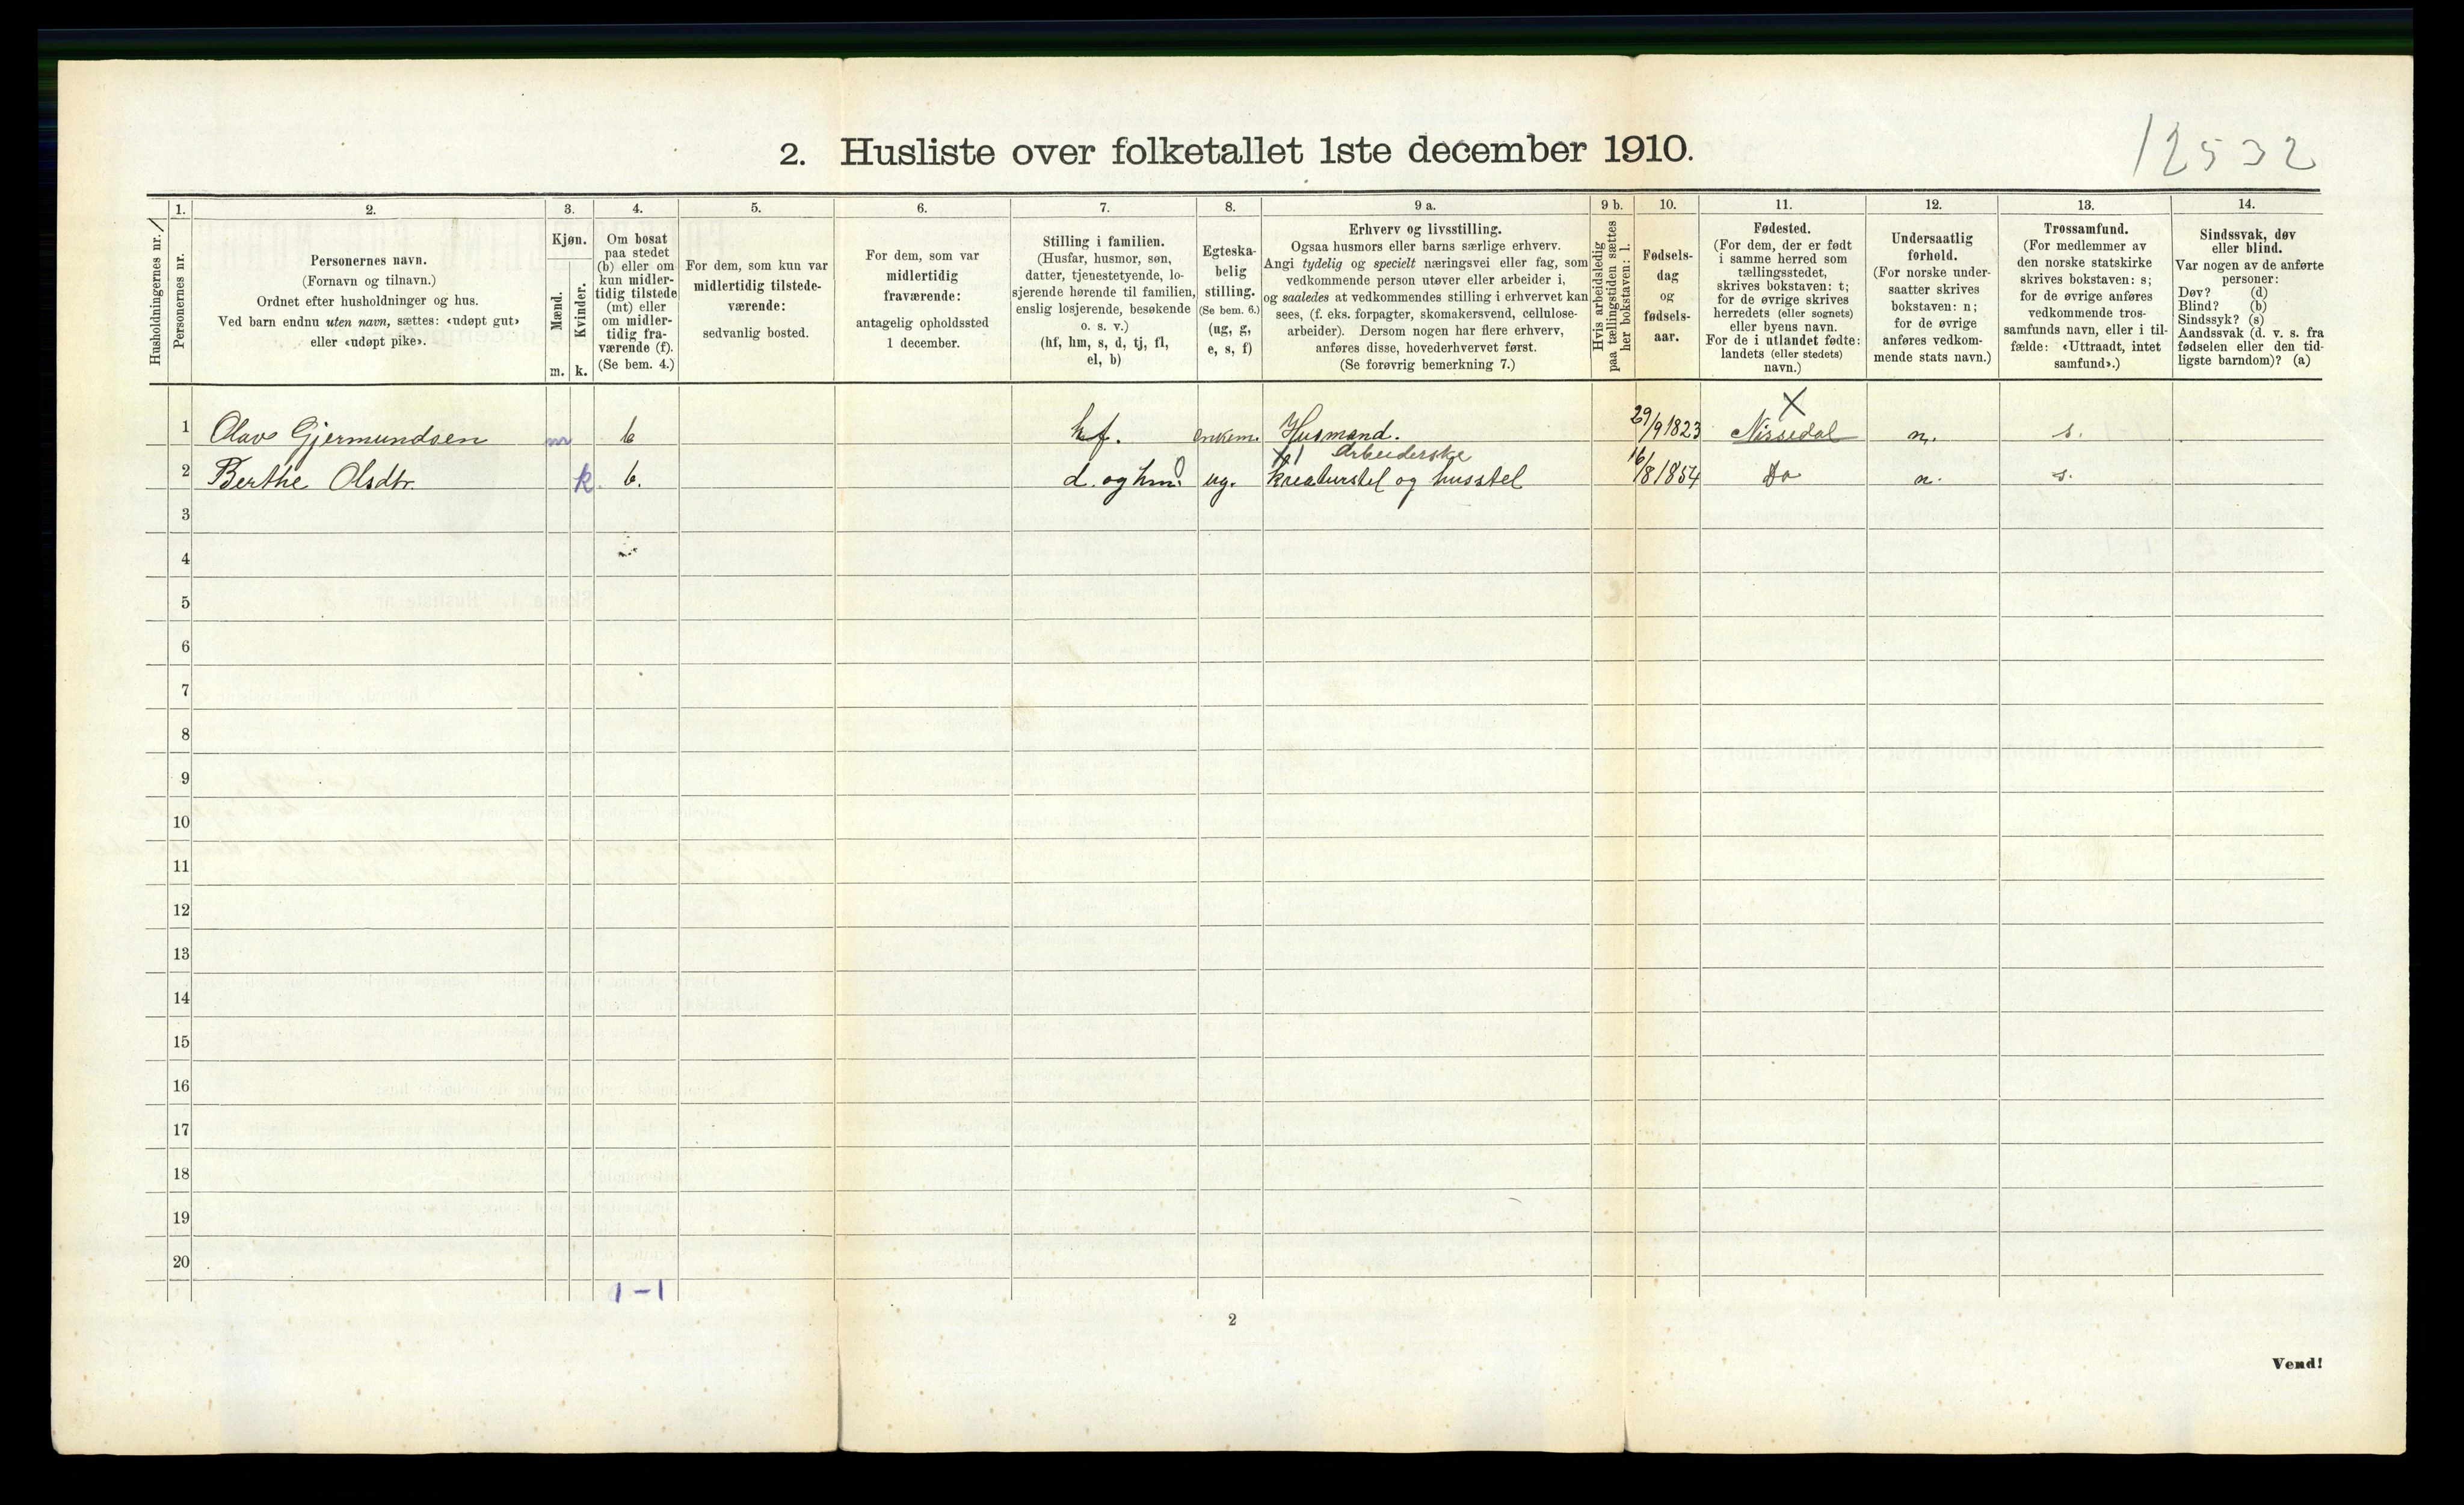 12532
2. Husliste over folketallet 1ste december 1910.
Husholdningernes nr.
1.
Personernes nr.
2.
Personernes navn.
(Fornavn og tilnavn.)
Ordnet efter husholdninger og hus.
Ved barn endnu uten navn, sættes: «udøpt gut»
eller «udøpt pike».
3.
Kjøn.
Mænd.
Kvinder.
m. k.
4.
Om bosat
paa stedet
(b) eller om
kun midler-
tidig tilstede
(mt) eller
om midler-
tidig fra-
værende (f).
(Se bem. 4.)
5.
For dem, som kun var
midlertidig tilstede-
værende:
sedvanlig bosted.
6.
For dem, som var
midlertidig
fraværende:
antagelig opholdssted
1 december.
7.
Stilling i familien.
(Husfar, husmor, søn,
datter, tjenestetyende, lo-
sjerende hørende til familien,
enslig losjerende, besøkende
o. s. v.)
(hf, hm, s, d, tj, fl,
el, b)
8.
Egteska-
belig
stilling.
(Se bem. 6.)
(ug, g,
e, s, f)
9 a.
Erhverv og livsstilling.
Ogsaa husmors eller barns særlige erhverv.
Angi tydelig og specielt næringsvei eller fag, som
vedkommende person utøver eller arbeider i,
og saaledes at vedkommendes stilling i erhvervet kan
sees, (f. eks. forpagter, skomakersvend, cellulose-
arbeider). Dersom nogen har flere erhverv,
anføres disse, hovederhvervet først.
(Se forøvrig bemerkning 7.)
9 b.
Hvis arbeidsledig
paa tællingstiden sættes
her bokstaven: l.
10.
Fødsels-
dag
og
fødsels-
aar.
11.
Fødested.
(For dem, der er født
i samme herred som
tællingsstedet,
skrives bokstaven: t;
for de øvrige skrives
herredets (eller sognets)
eller byens navn.
For de i utlandet fødte:
landets (eller stedets)
navn.)
12.
Undersaatlig
forhold.
(For norske under-
saatter skrives
bokstaven: n;
for de øvrige
anføres vedkom-
mende stats navn.)
13.
Trossamfund.
(For medlemmer av
den norske statskirke
skrives bokstaven: s;
for de øvrige anføres
vedkommende tros-
samfunds navn, eller i til-
fælde: «Uttraadt, intet
samfund».)
14.
Sindssvak, døv
eller blind.
Var nogen av de anførte
personer:
Døv? (d)
Blind? (b)
Sindssyk? (s)
Aandssvak (d. v. s. fra
fødselen eller den tid-
ligste barndom)? (a)
1 Olav Gjermundsen m b hf. enkem. Husmand. 29/9 1823 Nissedal n. s.
Arbeiderske
2 Berthe Olsdtr. k. b. d. og hm. ug. kreaturstel og husstel 16/8 1854 Do n. s.
3
4
5
6
7
8
9
10
11
12
13
14
15
16
17
18
19
20
1-1
2
Vend!